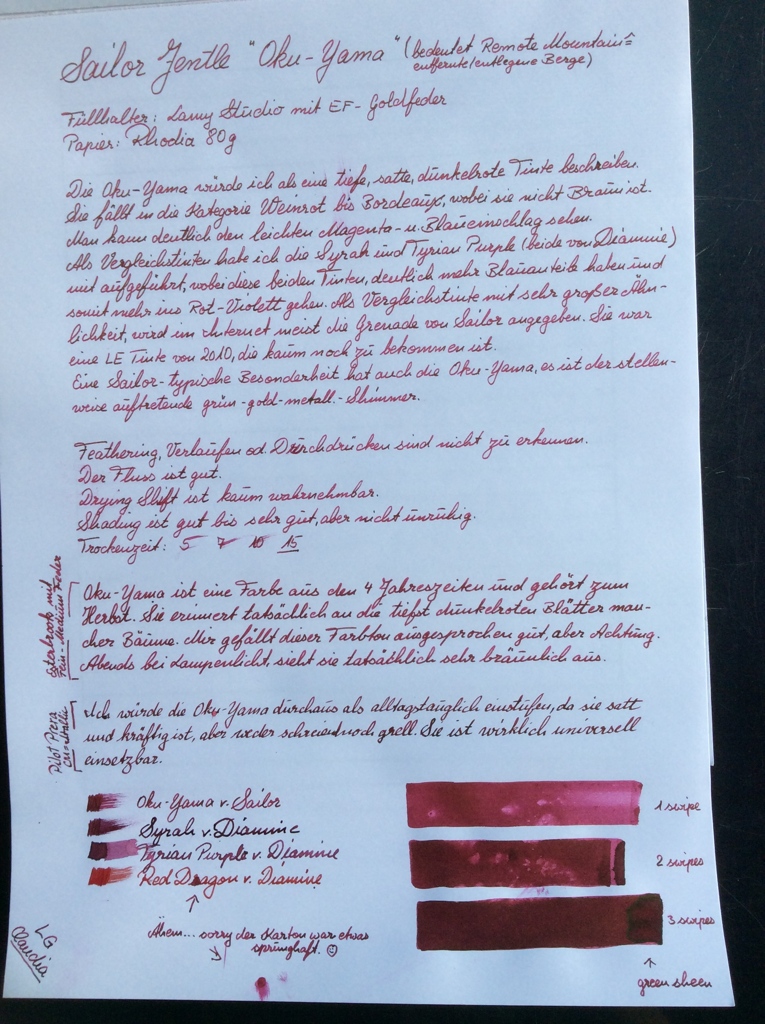 Sailor Jentle "Oku-Yama" (bedeutet Remote Mountain ≙
entfernte/entlegene Berge)
Füllhalter: Lamy Studio mit EF-Goldfeder
Papier: Rhodia 80g
Die Oku-Yama würde ich als eine tiefe, satte, dunkelrote Tinte beschreiben.
Sie fällt in die Kategorie Weinrot bis Bordeaux, wobei sie nicht Braun ist.
Man kann deutlich den leichten Magenta- u. Blaueinschlag sehen.
Als Vergleichstinten habe ich die Syrah und Tyrian Purple (beide von Diamine)
mit aufgeführt, wobei diese beiden Tinten, deutlich mehr Blauanteile haben und
somit mehr ins Rot-Violett gehen. Als Vergleichstinte mit sehr großer Ähn-
lichkeit, wird im Internet meist die Grenade von Sailor angegeben. Sie war
eine LE Tinte von 2010, die kaum noch zu bekommen ist.
Eine Sailor-typische Besonderheit hat auch die Oku-Yama, es ist der stellen-
weise auftretende grün-gold-metall.-Shimmer.
Feathering, Verlaufen od. Durchdrücken sind nicht zu erkennen.
Der Fluss ist gut.
Drying Shift ist kaum wahrnehmbar.
Shading ist gut bis sehr gut, aber nicht unruhig.
Trockenzeit: 5 7 10 15
Esterbrook mit
Fein-Medium Feder
Oku-Yama ist eine Farbe aus den 4 Jahreszeiten und gehört zum
Herbst. Sie erinnert tatsächlich an die tiefst dunkelroten Blätter man-
cher Bäume. Mir gefällt dieser Farbton ausgesprochen gut, aber Achtung.
Abends bei Lampenlicht, sieht sie tatsächlich sehr bräunlich aus.
Pilot Prera
Ich würde die Oku-Yama durchaus als alltagstauglich einstufen, da sie satt
und kräftig ist, aber weder schreiend noch grell. Sie ist wirklich universell
einsetzbar.
Oku-Yama v. Sailor
Syrah v. Diamine
Tyrian Purple v. Diamine
Red Dragon v. Diamine
Ähem... sorry der Karton war etwas
sprunghaft. ☺
1 swipe
2 swipes
3 swipes
green sheen
LG
Claudia